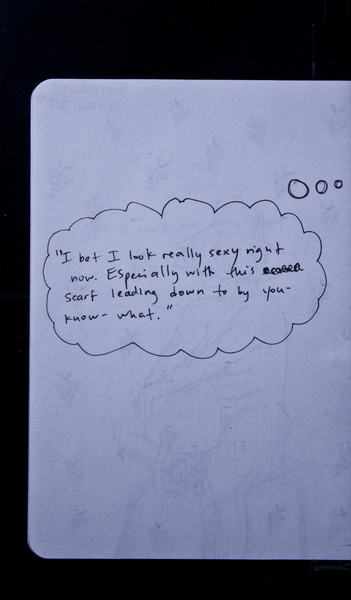 "I bet I look really sexy right
now. Especially with this
scarf leading down to by you-
know-what."